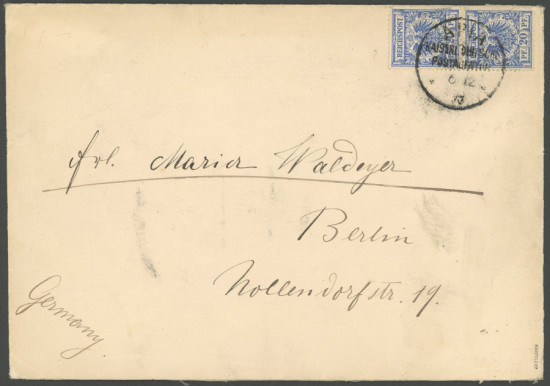 REICHSPOST
20 PF.
APIA
KAISERL. DEUTSCHE
POSTAGENTUR
6 12
93
Frl. Marie Waldeyer
Berlin
Nollendorfstr. 19.
Germany.